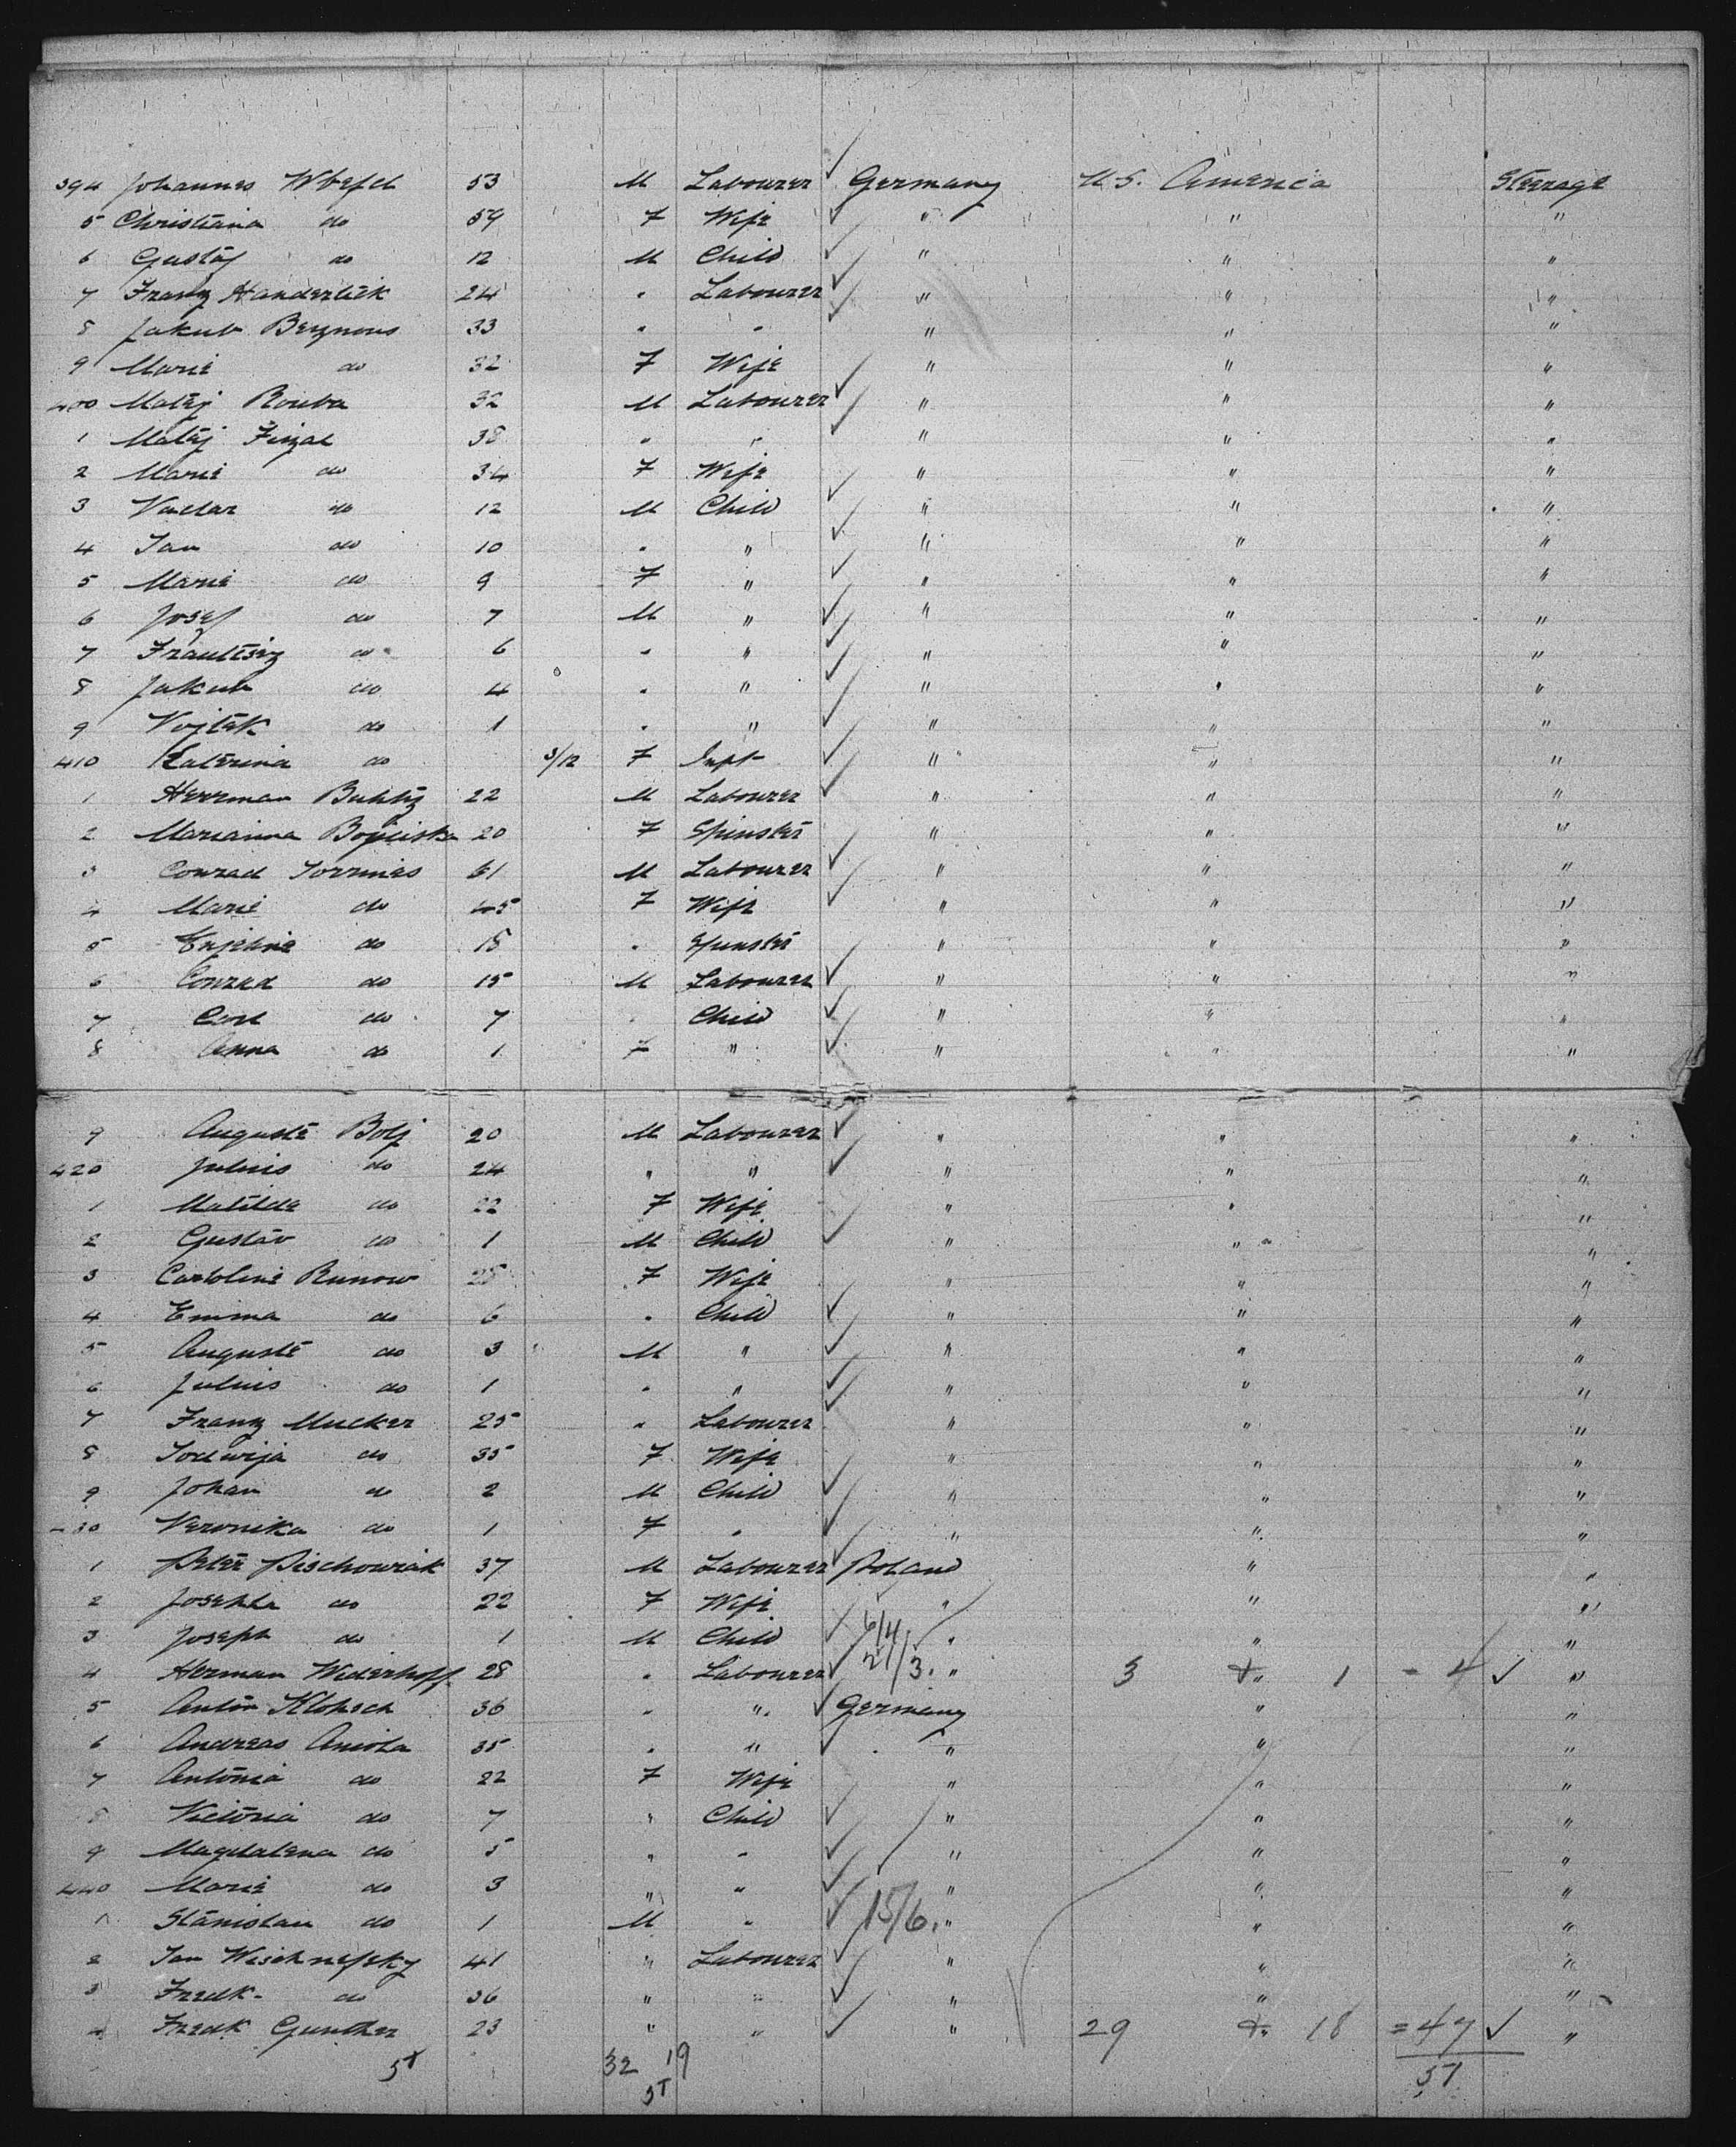 394 Johannes 53 M Labourer Germany U.S. America Steerage
5 Christiana do 59 F Wife " " "
6 Gustaf do 12 M Child " " "
7 Franz Handerlick 24 " Labourer " " "
8 Jakub Bergnous 33 " " " " "
9 Marie do 32 F Wife " " "
400 Matej Rouba 32 M Labourer " " "
1 Matej 38 " " " " "
2 Marie do 34 F Wife " " "
3 Vaclav do 12 M Child " " "
4 Jan do 10 " " " " "
5 Marie do 9 F " " " "
6 Josef do 7 M " " " "
7 do 6 " " " " "
8 Jakub do 4 " " " " "
9 Vojtek do 1 " " " " "
410 Katerina do 3/12 F Inft " " "
1 Herrman 22 M Labourer " " "
2 Marianna 20 F Spinster " " "
3 Conrad Jorrmies 61 M Labourer " " "
4 Marie do 45 F Wife " " "
5 do 18 " Spinster " " "
6 Conrad do 15 M Labourer " " "
7 Carl do 7 " Child " " "
8 Anna do 1 F " " " "
9 Auguste Bolj 20 M Labourer " " "
420 Julius do 24 " " " " "
1 Matilda do 22 F Wife " " "
2 Gustav do 1 M Child " " "
3 Caroline Runow 28 F Wife " " "
4 Emma do 6 " Child " " "
5 Auguste do 3 M " " " "
6 Julius do 1 " " " " "
7 Franz Mucker 25 " Labourer " " "
8 Jodwija do 35 F Wife " " "
9 Johan do 2 M Child " " "
430 Veronika do 1 F " " " "
1 Peter Pischowiak 37 M Labourer Poland " "
2 Josepha do 22 F Wife " " "
3 Joseph do 1 M Child 6/4 " " "
4 Herman Wederhoff 28 " Labourer 21/3. " 3 & " 1 = 4 "
5 Anton Klohsch 36 " " Germany " "
6 Andreas Aniola 35 " " " " "
7 Antonia do 22 F Wife " " "
8 Victoria do 7 " Child " " "
9 Magdalena do 5 " " " " "
440 Marie do 3 " " " " "
1 Stanislau do 1 M " 15/6. " " "
2 Jan Wischnefsky 41 " Labourer " " "
3 Fredk. do 36 " " " " "
4 Fredk Gunther 23 " " " 29 & " 18 = 47 "
51 32 19 51
51